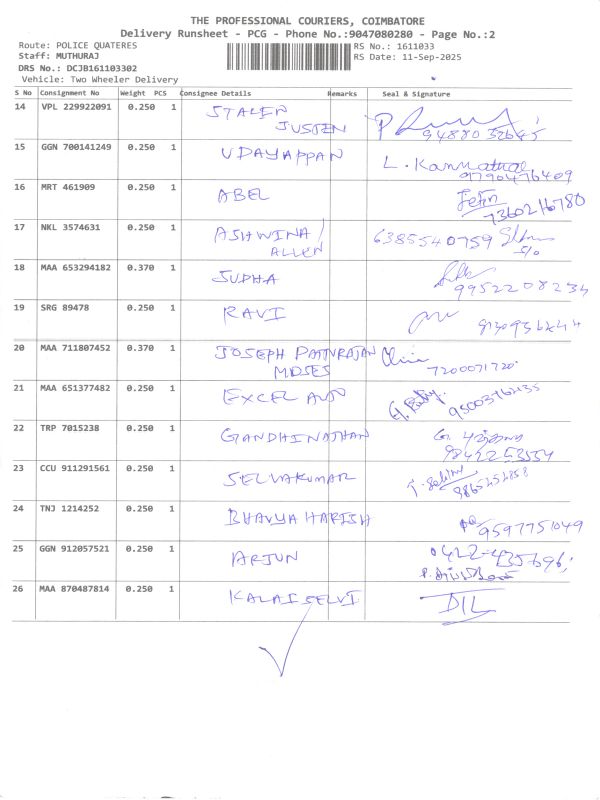 THE PROFESSIONAL COURIERS, COIMBATORE
Delivery Runsheet - PCG - Phone No.:9047080280 - Page No.:2
Route: POLICE QUATERES
RS No.: 1611033
Staff: MUTHURAJ
RS Date: 11-Sep-2025
DRS No.: DCJB161103302
Vehicle: Two Wheeler Delivery
S No Consignment No Weight PCS Consignee Details Remarks Seal & Signature
14 VPL 229922091 0.250 1 STALEN
JUSTEN
9488032645
15 GGN 700141249 0.250 1 UDAYAPPAN L. Kannathal
9790476409
16 MRT 461909 0.250 1 ABEL Jefin
7360216780
17 NKL 3574631 0.250 1 ASHWINA/ 6385540759
ALLEN S/o
18 MAA 653294182 0.370 1 SUPHA
9952208234
19 SRG 89478 0.250 1 RAVI
20 MAA 711807452 0.370 1 JOSEPH PATTURAJAN
MOSES 7200071720
21 MAA 651377482 0.250 1 EXCEL
9500376235
22 TRP 7015238 0.250 1 GANDHINATHAN G.
9842253554
23 CCU 911291561 0.250 1 SELVAKUMAR
9865252858
24 TNJ 1214252 0.250 1 BHAVYA HARISH 9597751049
25 GGN 912057521 0.250 1 ARJUN 0422-435696
26 MAA 870487814 0.250 1 KALAISELVI DIL